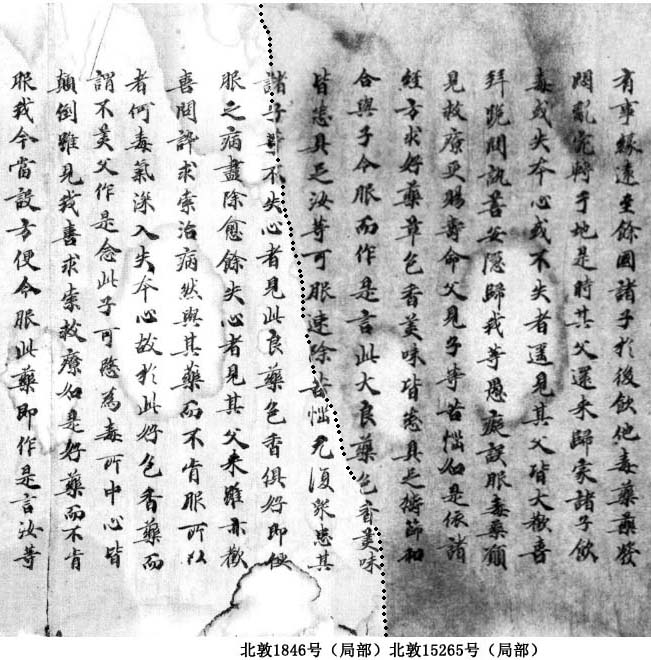 有事緣遠至餘國諸子於後飲他毒藥藥發
悶亂宛轉于地是時其父還來歸家諸子飲
毒或失本心或不失者遥見其父皆大歡喜
拜跪問訊善安隱歸我等愚癡誤服毒藥願
見救療更賜壽命父見子等苦惱如是依諸
經方求好藥草色香美味皆悉具足擣篩和
合與子令服而作是言此大良藥色香美味
皆悉具足汝等可服速除苦惱无復衆患其
諸子等不失心者見此良藥色香俱好即便
服之病盡除愈餘失心者見其父來雖亦歡
喜問訊求索治病然與其藥而不肯服所以
者何毒氣深入失本心故於此好色香藥而
謂不美父作是念此子可愍為毒所中心皆
顛倒雖見我喜求索救療如是好藥而不肯
服我今當設方便令服此藥即作是言汝等
北敦1846号（局部）北敦15265号（局部）